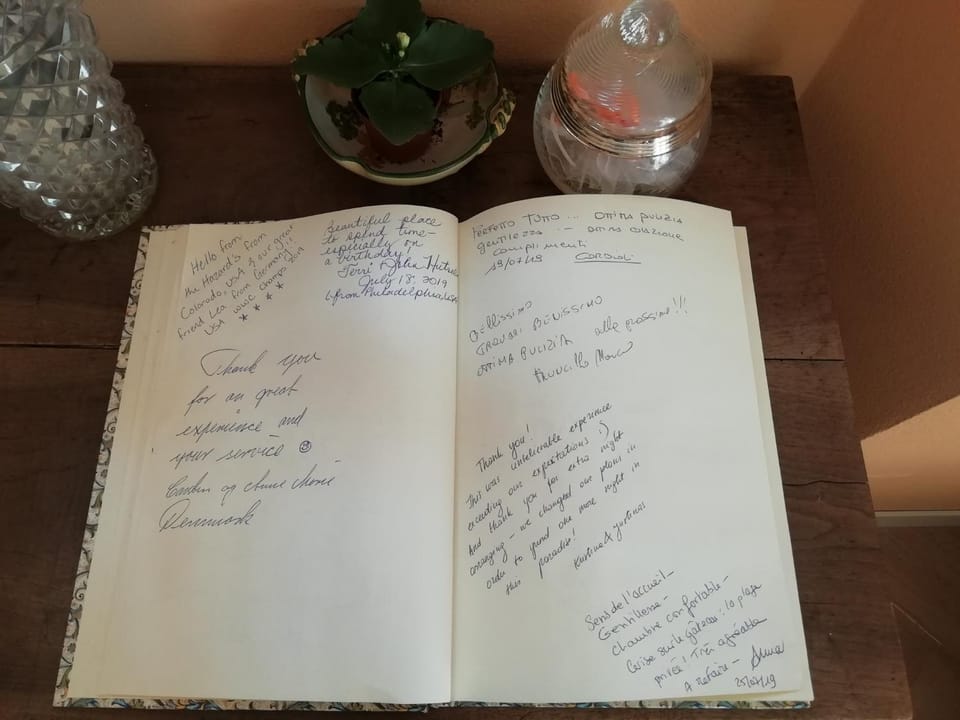 Hello from
the Hazard's from
Colorado, USA & our great
friend Lea from Germany!!
USA WWC champs 2019
Beautiful place
to spend time -
especially on
a birthday!
Terri & John
July 18, 2019
from Philadelphia, USA
Thank you
for an great
experience and
your service ☺
og Anne Marie
Denmark
PERFETTO TUTTO ... OTTIMA PULIZIA
GENTILEZZA - OTTIMA COLAZIONE
COMPLIMENTI
19/07/19
BELLISSIMO
OTTIMA PULIZIA alla prossima!!!
Thank you!
This was unbelievable experience
exceeding our expectations :)
And thank you for extra night
arranging - we changed our plans in
order to spend one more night in
this paradise!
Kristina & Justinas
Sens de l'accueil -
Gentillesse -
chambre confortable -
Cerise sur le gâteau : la plage
privée ! Très agréable
A refaire - Anna
25/07/19